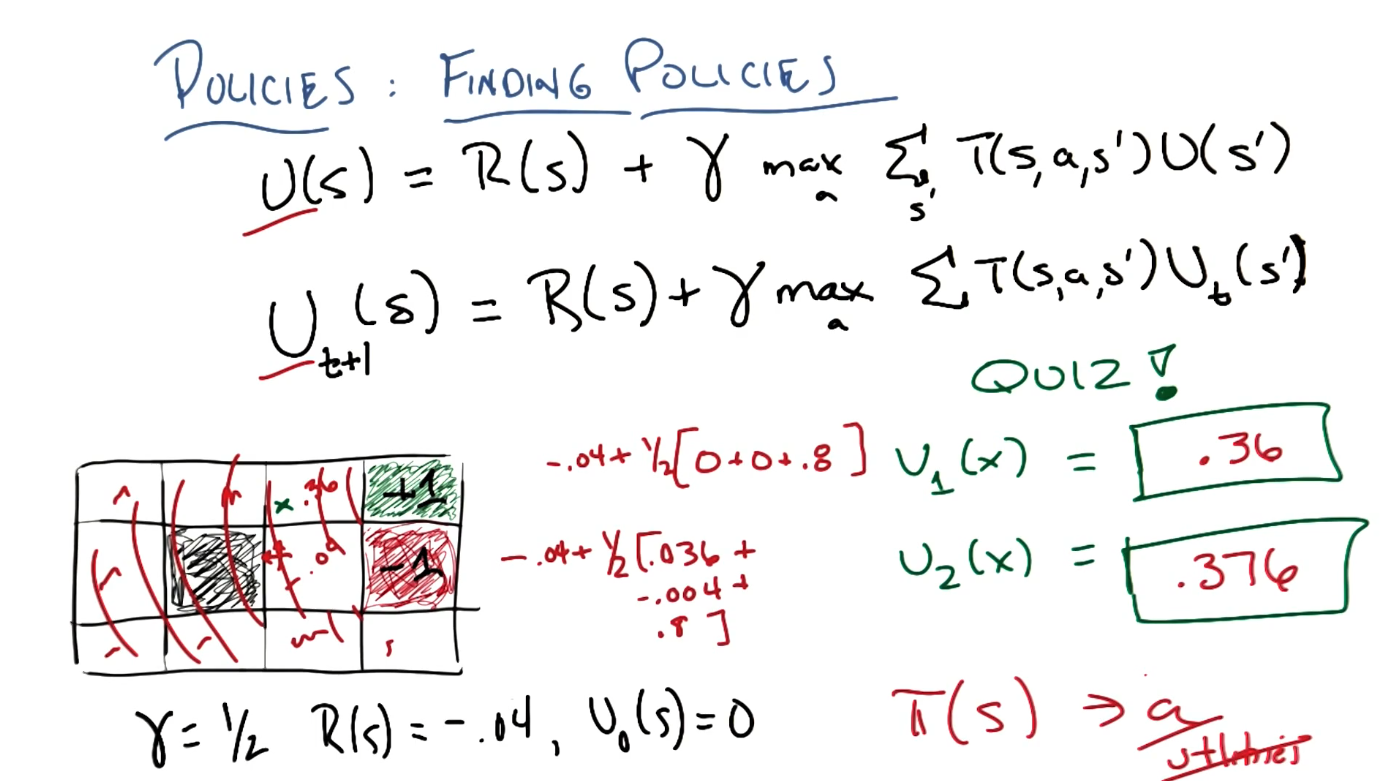 POLICIES : FINDING POLICIES
U(s) = R(s) + γ max_a Σ_s' T(s,a,s')U(s')
U_t+1(s) = R(s) + γ max_a Σ T(s,a,s')U_t(s')
QUIZ!
-.04 + 1/2[0+0+.8] U_1(x) = .36
x .36 +1
-.04 -1
-.04 + 1/2[.036 + U_2(x) = .376
-.004 +
.8]
γ = 1/2 R(s) = -.04, U_0(s) = 0
π(s) → a
utilities